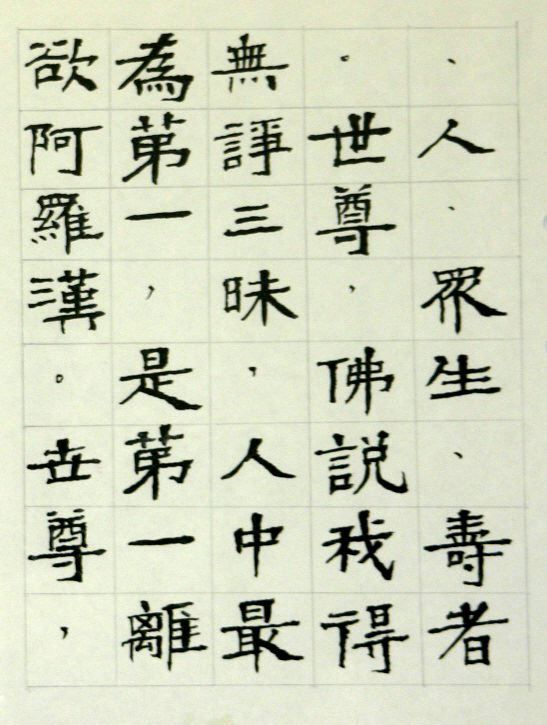 、人、眾生、壽者
。世尊，佛説我得
無諍三昧，人中最
為第一，是第一離
欲阿羅漢。世尊，